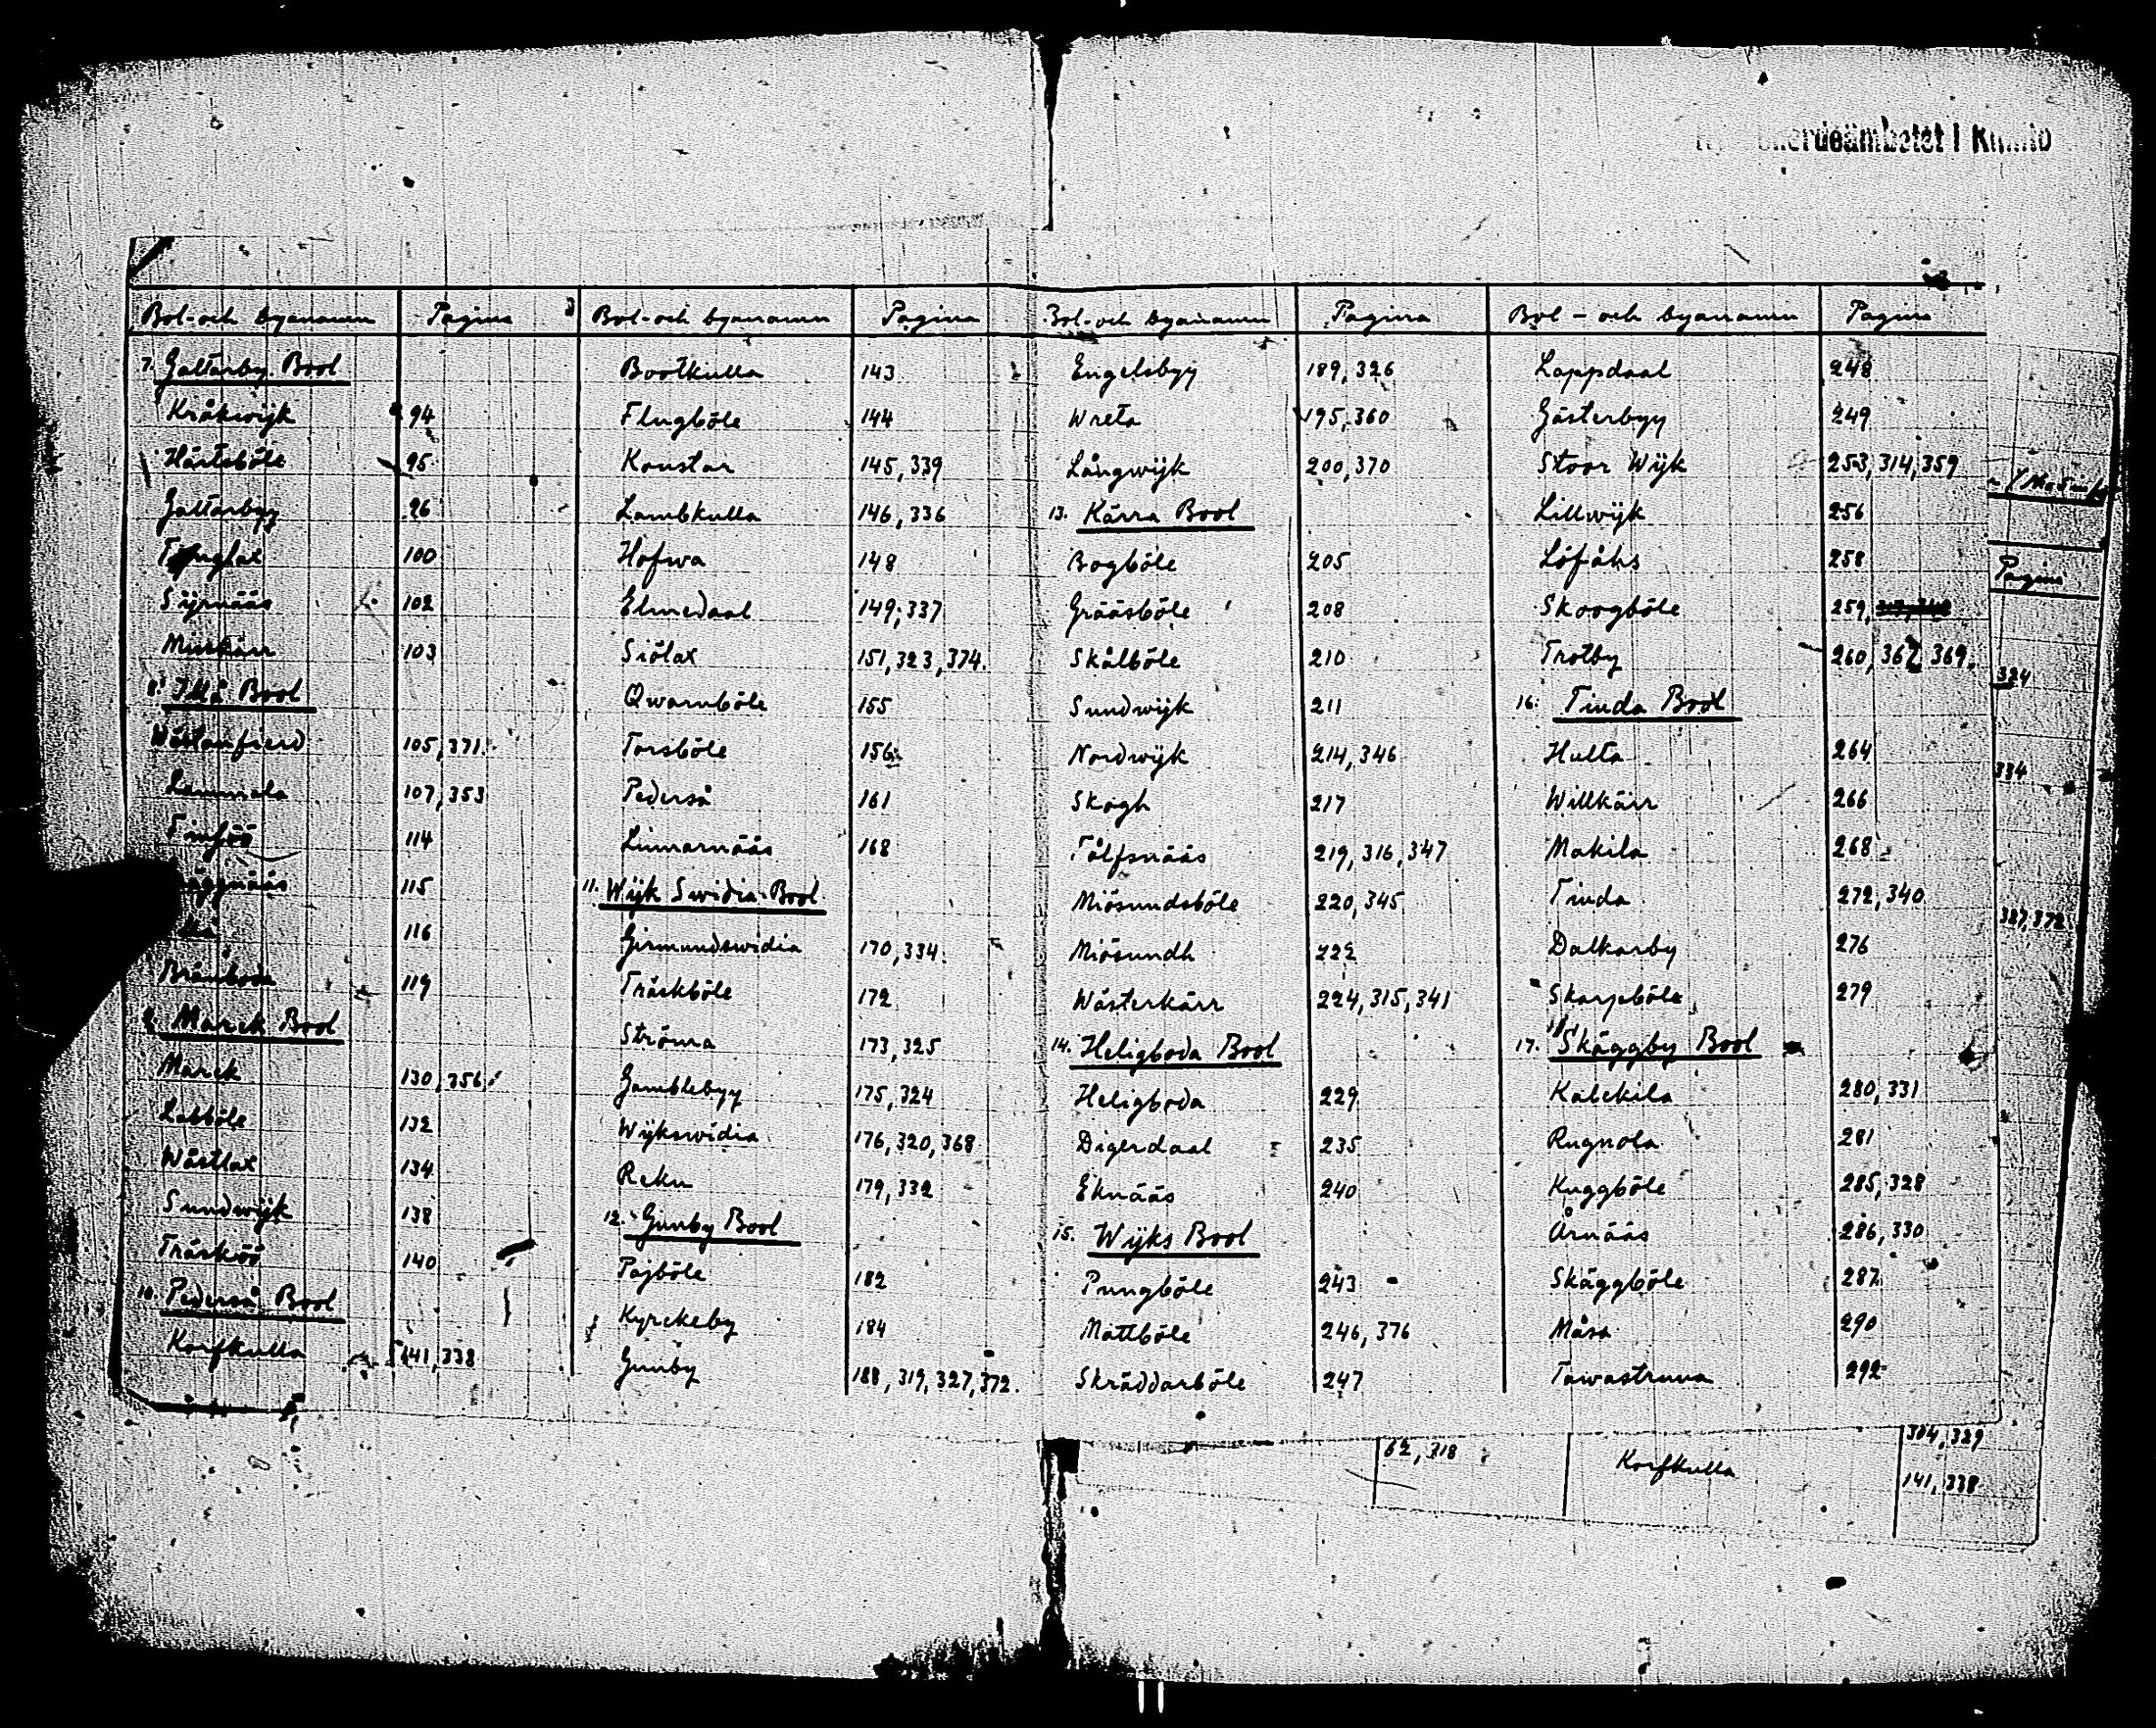 Bol- och byanamn Pagina
7. Galtarby Bool
Kråkwijk 94
Härtsböle 95
Galtarbyy 96
100
Sijrnääs 102
Mirkärr 103
8. Illå Bool
Wästanfierd 105, 371.
Lammala 107, 353
114
115
116
119
9. Marck Bool
Marck 130, 356
Labböle 132
Wästlax 134
Sundwijk 138
Träsköö 140
10. Pederså Bool
Korfkulla 141, 338
Bol- och byanamn Pagina
Bootkulla 143
Flugböle 144
Konstar 145, 339
Lambkulla 146, 336
Hofwa 148
Elmedaal 149, 337
Siölax 151, 323, 374.
Qwarnböle 155
Torsböle 156
Pederså 161
Linnarnääs 168
11. Wijk Swidia Bool
Girmundswidia 170, 334.
Träskböle 172
Ströma 173, 325
Gamblebyy 175, 324
Wijkswidia 176, 320, 368
Reku 179, 332
12. Gunby Bool
Pajböle 182
Kyrckeby 184
Gunby 188, 319, 327, 372.
Bol- och byanamn Pagina
Engelsbyy 189, 326
Wreta 195, 360
Långwijk 200, 370
13. Kärra Bool
Bogböle 205
Grääsböle 208
Skålböle 210
Sundwijk 211
Nordwijk 214, 346
Skogh 217
Tålfsnääs 219, 316, 347
Miösundsböle 220, 345
Miösundh 222
Wästerkärr 224, 315, 341
14. Heligboda Bool
Heligboda 229
Digerdaal 235
Eknääs 240
15. Wijks Bool
Pungböle 243
Mattböle 246, 376
Skräddarböle 247
Bol- och byanamn Pagina
Lappdaal 248
Gästerbyy 249
Stoor Wijk 253, 314, 359
Lillwijk 256
Löfåhs 258
Skoogböle 259,
Trotby 260, 362, 369.
16. Tinda Bool
Hulta 264
Willkärr 266
Makila 268
Tinda 272, 340
Dalkarby 276
Skarpböle 279
17. Skäggby Bool
Kalckila 280, 331
Rugnola 281
Kuggböle 285, 328
Årnääs 286, 330
Skäggböle 287
Måsa 290
Tawastruna 292
Pagina
324
334
327, 372
62, 318
304, 329
Korfkulla 141, 338